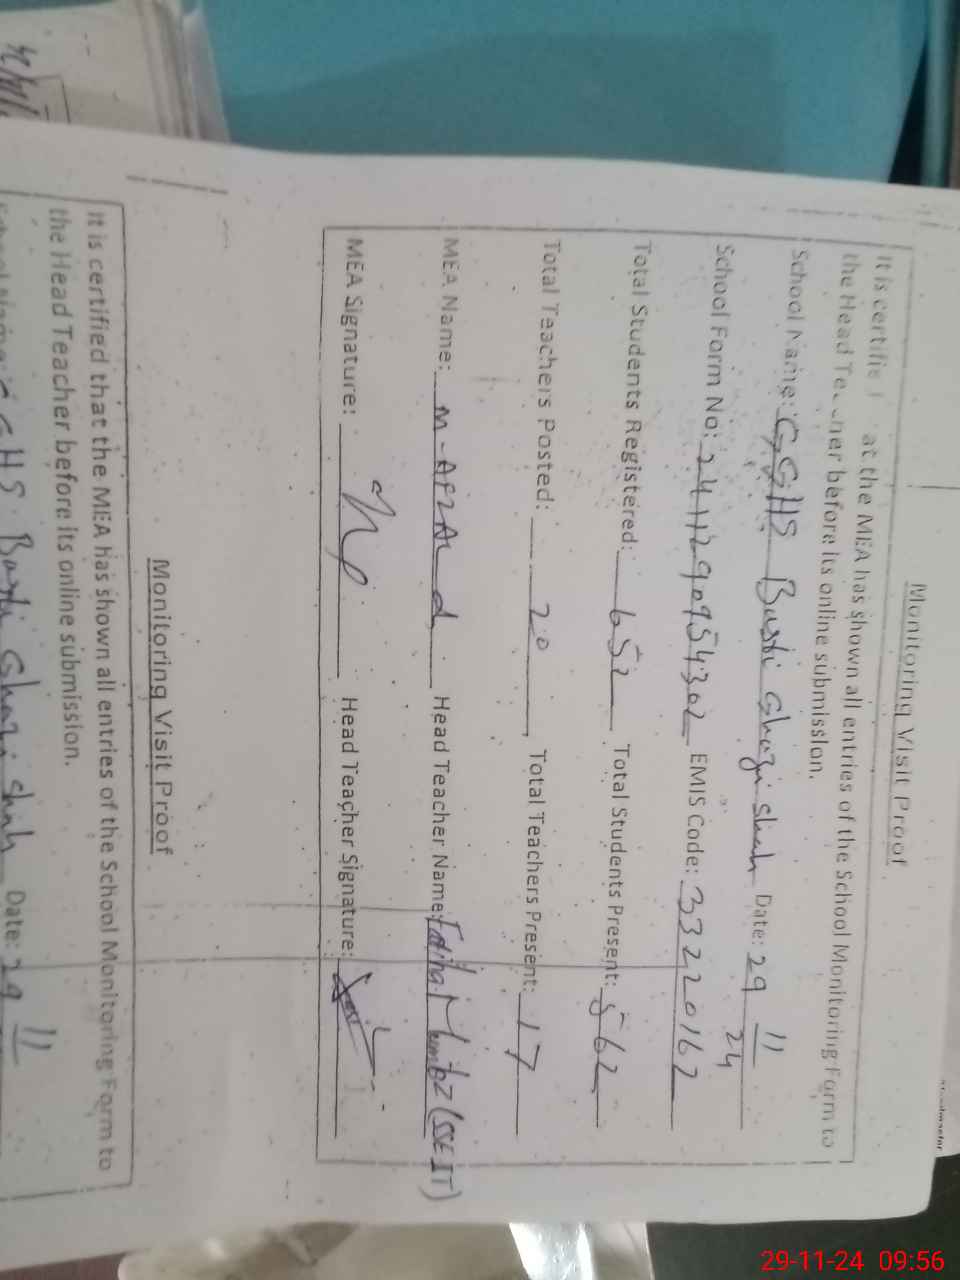 Monitoring Visit Proof
It is certifie at the MEA has shown all entries of the School Monitoring Form to
the Head Te ner before its online submission.
School Name: GGHS Basti Ghazi Shah Date: 29 11 24
School Form No: 24112909954302 EMIS Code: 33220162
Total Students Registered: 652 Total Students Present: 562
Total Teachers Posted: 20 Total Teachers Present: 17
MEA Name: M-AFZAL Head Teacher Name: (SSE IT)
MEA Signature: Head Teacher Signature:
Monitoring Visit Proof
It is certified that the MEA has shown all entries of the School Monitoring Form to
the Head Teacher before its online submission.
GGHS Basti Ghazi Shah Date: 29 11
29-11-24 09:56